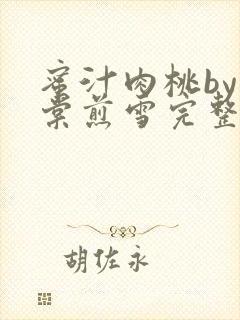 蜜汁肉桃by
棠煎雪完整
胡佐永